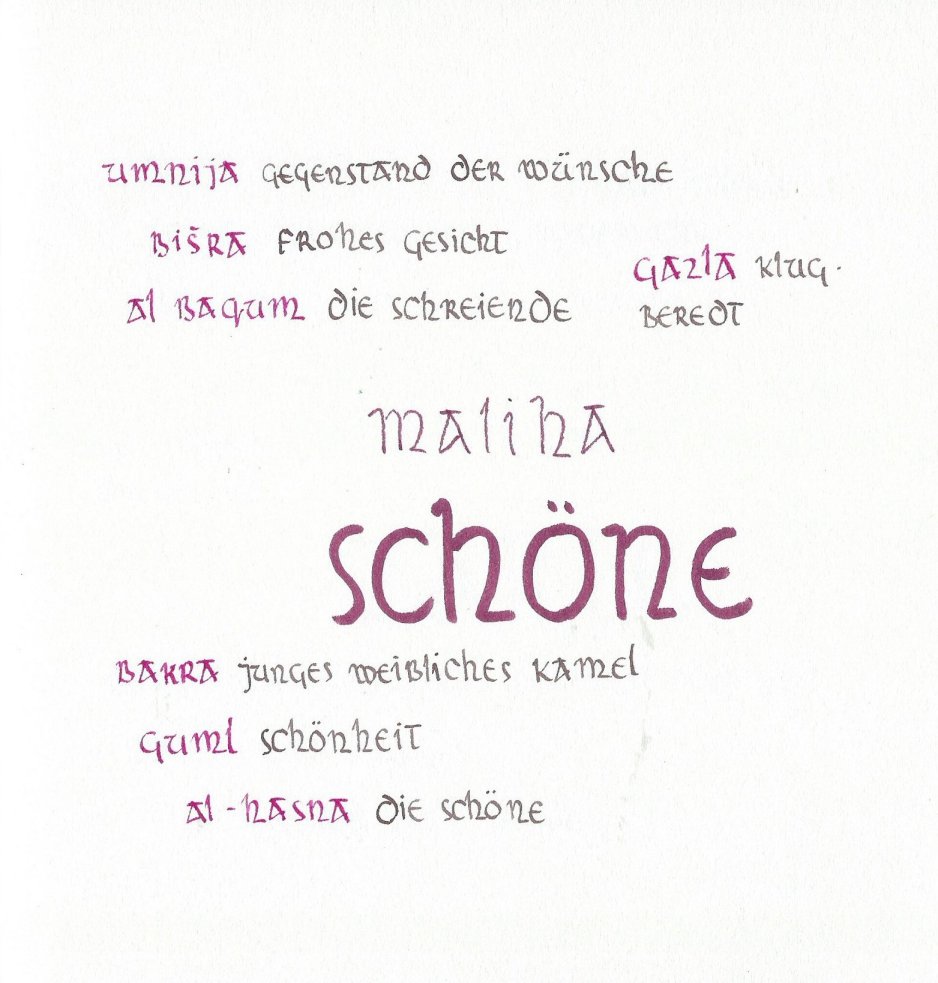 umnija gegenstand der wünsche
bišra frohes gesicht
gazla klug-
al bagum die schreiende
beredt
maliha
schöne
bakra junges weibliches kamel
guml schönheit
al-hasna die schöne